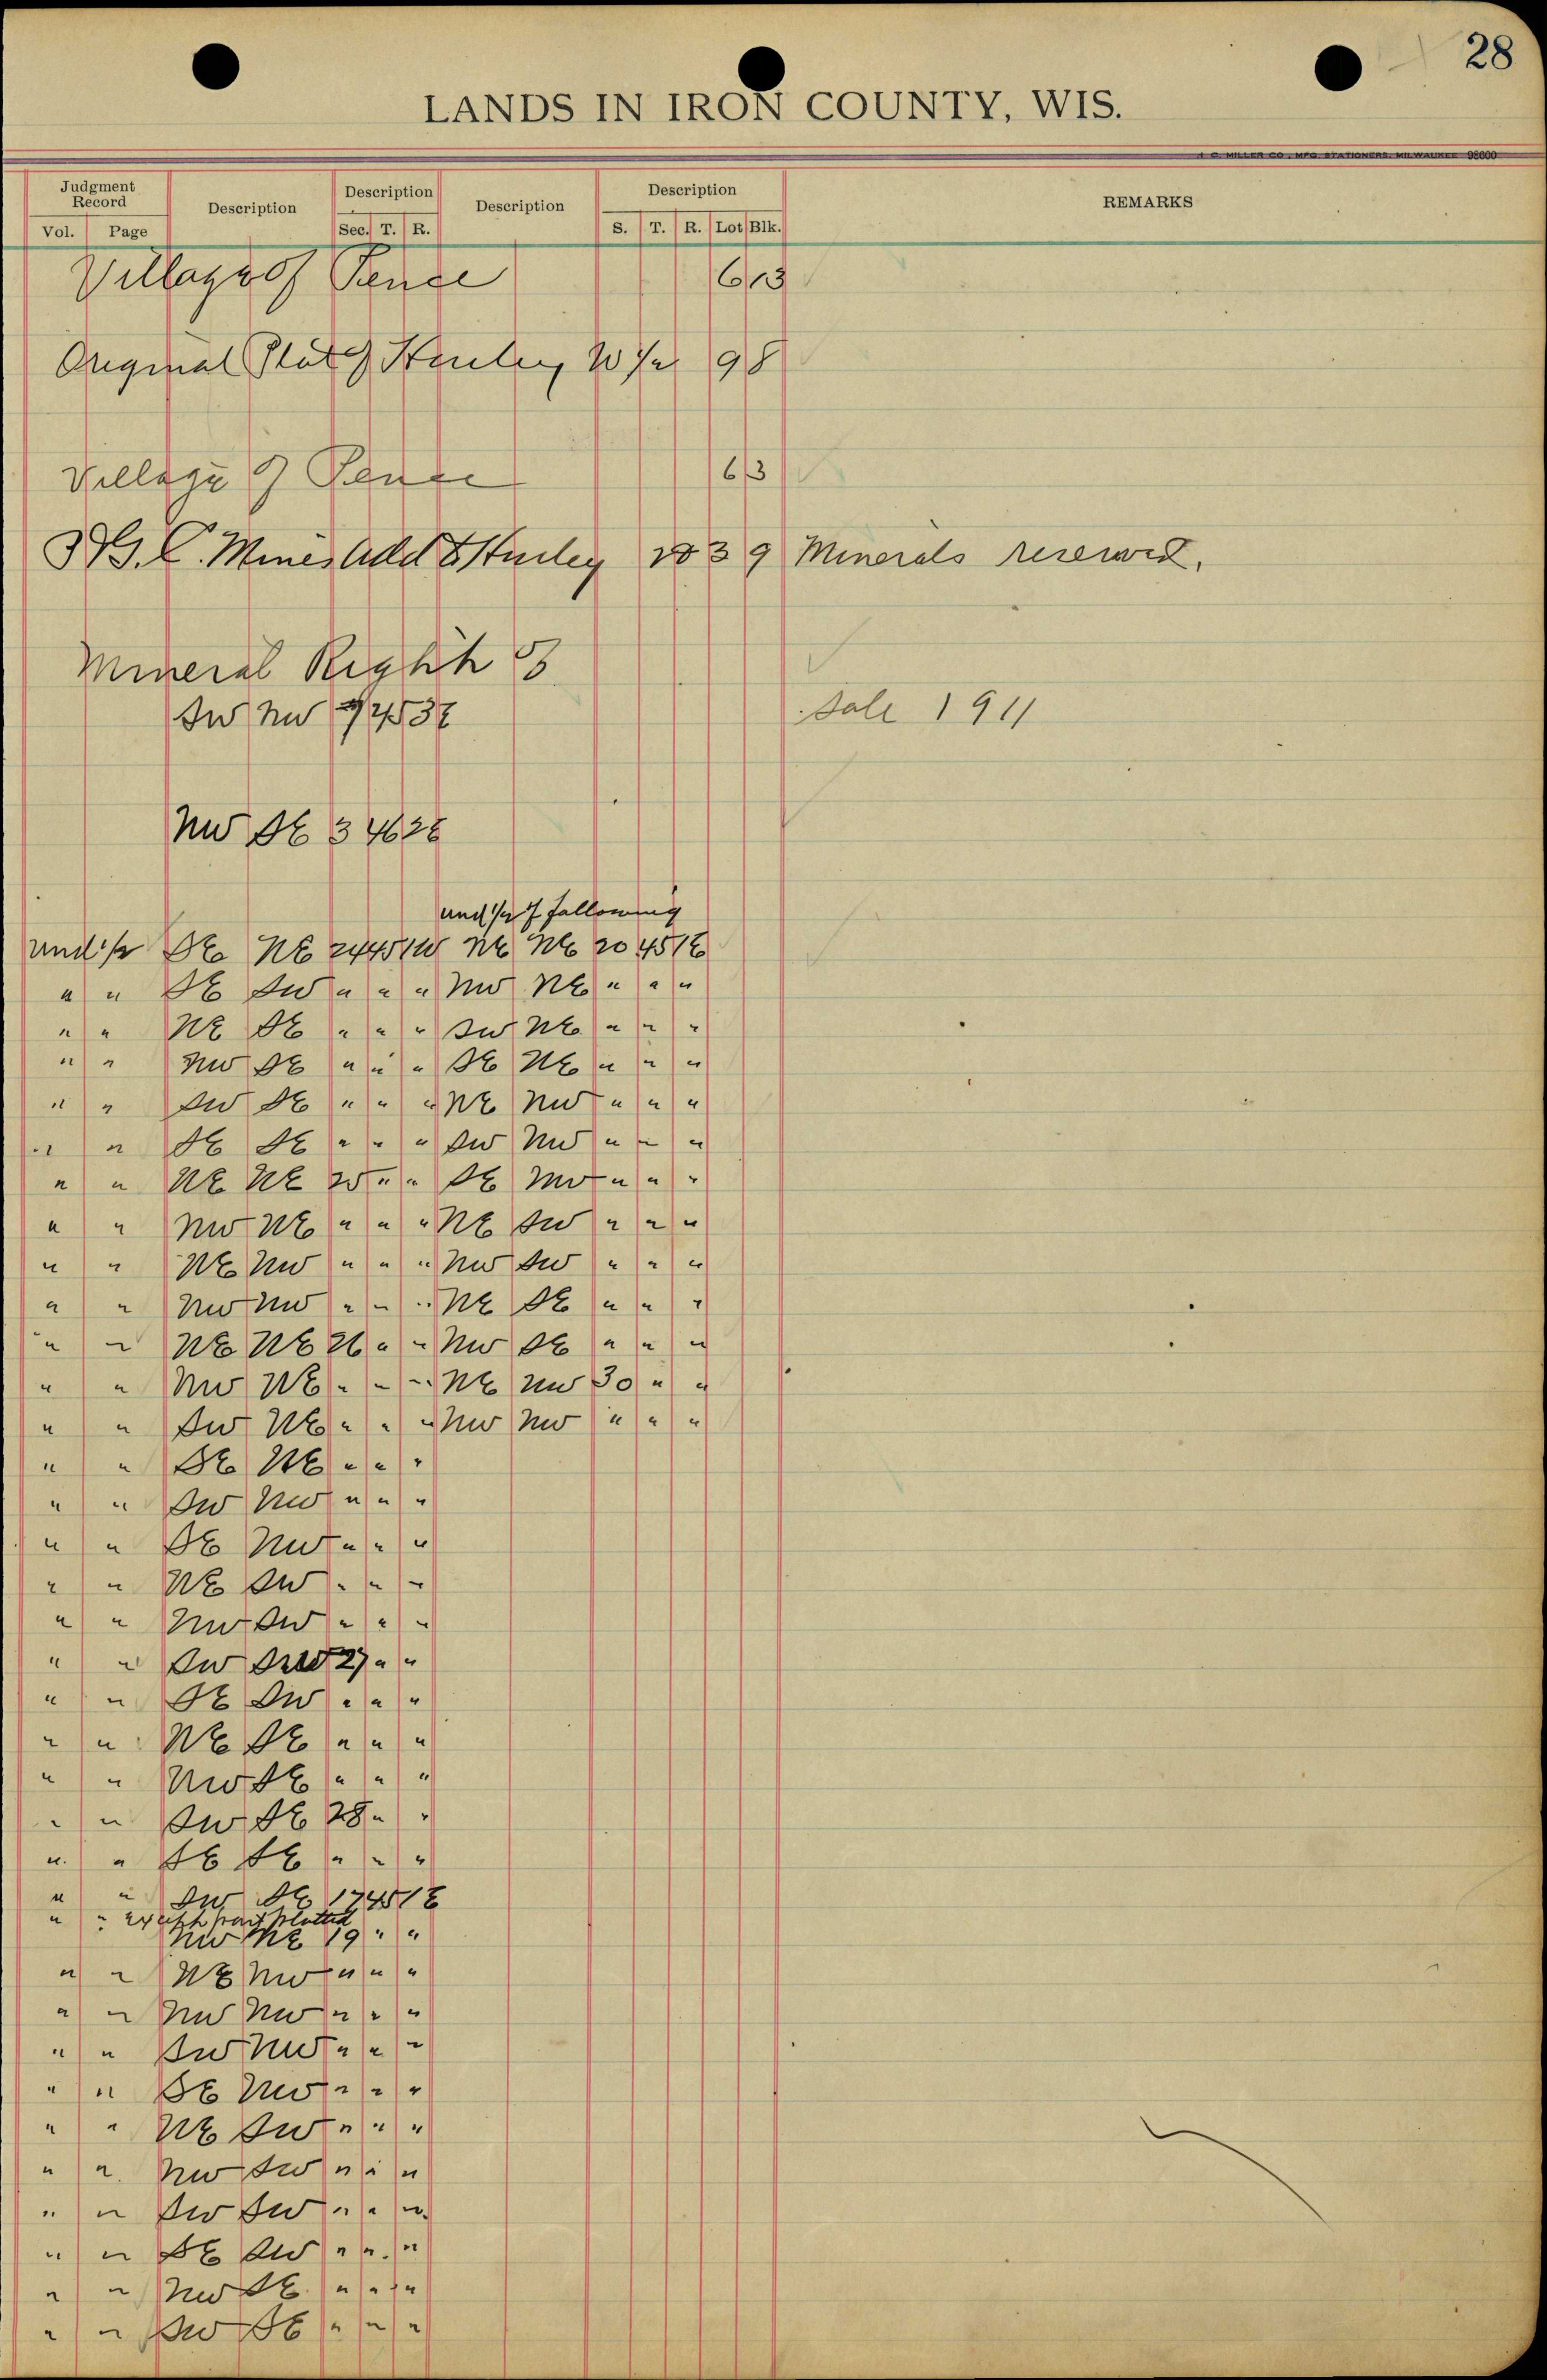 28
LANDS IN IRON COUNTY, WIS.
J. C. MILLER CO., MFG. STATIONERS, MILWAUKEE 98600
Judgment Record Description Description Description Description REMARKS
Vol. Page Sec. T. R. S. T. R. Lot Blk.
Village of Pence 6 13
Original Plat of Hurley W 1/2 9 8
Village of Pence 6 3
Mines Add to Hurley 39 Minerals reserved.
Mineral Right
SW NW 45 3E Sale 1911
NW SE 3 46 2E
und 1/2 of following
und 1/2 SE NE 24 45 1W NE NE 20 45 1E
" " SE SW " " " NW NE " " "
" " NE SE " " " SW NE " " "
" " NW SE " " " SE NE " " "
" " SW SE " " " NE NW " " "
" " SE SE " " " SW NW " " "
" " NE NE 25 " " SE NW " " "
" " NW NE " " " NE SW " " "
" " NE NW " " " NW SW " " "
" " NW NW " " " NE SE " " "
" " NE NE 26 " " NW SE " " "
" " NW NE " " " NE NW 30 " "
" " SW NE " " " NW NW " " "
" " SE NE " " "
" " SW NW " " "
" " SE NW " " "
" " NE SW " " "
" " NW SW " " "
" " SW SW 27 " "
" " SE SW " " "
" " NE SE " " "
" " NW SE " " "
" " SW SE 28 " "
" " SE SE " " "
" " SW SE 17 45 1E
" " except part platted
NW NE 19 " "
" " NE NW " " "
" " NW NW " " "
" " SW NW " " "
" " SE NW " " "
" " NE SW " " "
" " NW SW " " "
" " SW SW " " "
" " SE SW " " "
" " NW SE " " "
" " SW SE " " "